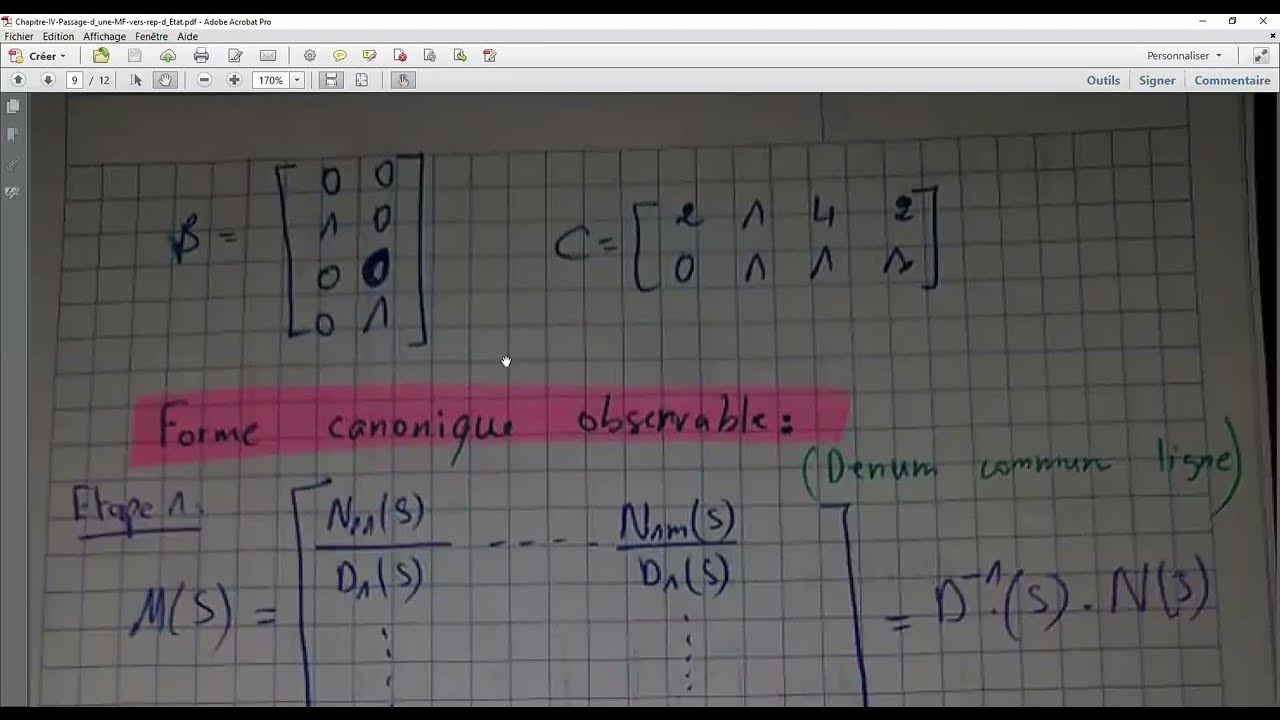 Chapitre-IV-Passage-d_une-MF-vers-rep-d_Etat.pdf - Adobe Acrobat Pro
Fichier Edition Affichage Fenêtre Aide
Créer Personnaliser
9 / 12 170% Outils Signer Commentaire
B = [ 0 0
1 0
0 0
0 1 ]
C = [ 2 1 4 2
0 1 1 1 ]
Forme canonique observable :
(Denum commun ligne)
Etape 1.
M(S) = [ N11(S) / D1(S) - - - - N1m(S) / D1(S)
⋮ ⋮ ] = D⁻¹(S) . N(S)